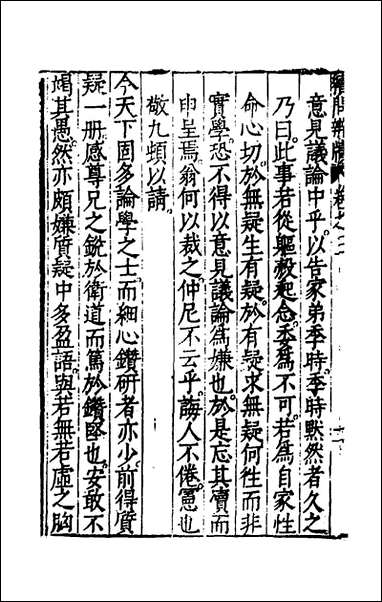 意見議論中乎以告家弟季時季時黙然者久之
乃曰此事若從軀殼起念委爲不可若爲自家性
命心切於無疑生有疑於有疑求無疑何徃而非
實學恐不得以意見議論爲嫌也於是忘其凟而
申呈焉翁何以裁之仲尼不云乎誨人不倦憲也
敬九頓以請
今天下固多論學之士而細心鑽研者亦少前得質
疑一册感尊兄之鋭於衛道而篤於鑽堅也安敢不
竭其愚然亦頗嫌質疑中多盈語與若無若虛之胸